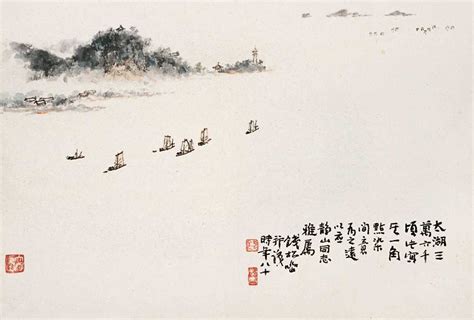 太湖三
萬六千
頃此寫
一角
點染
間
之遠
以应
靜山同志
雅屬
錢松嵒
并識
時年八十